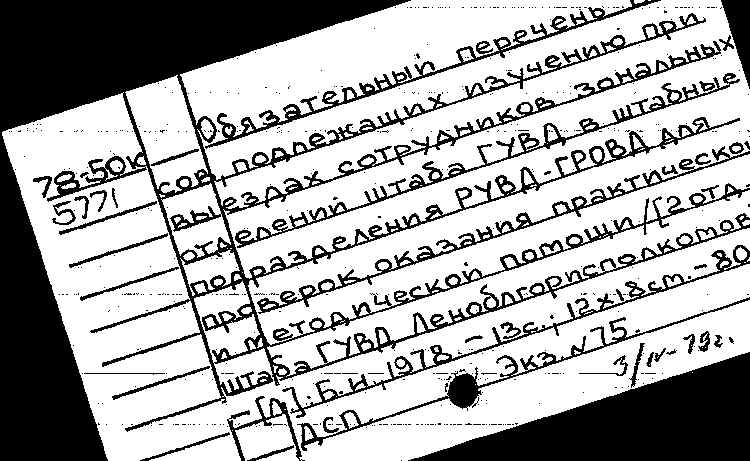 Обязательный перечень
78-50к
5771
сов, подлежащих изучению при
выездах сотрудников зональных
отделений штаба ГУВД в штабные
подразделения РУВД-ГРОВД для
проверок, оказания практической
и методической помощи/[2 отд.
штаба ГУВД Леноблгорисполкомов.
– [Л.]: Б.и., 1978. – 13с.; 12×18см. – 80
Экз. N 75.
ДСП
3/IV-79г.